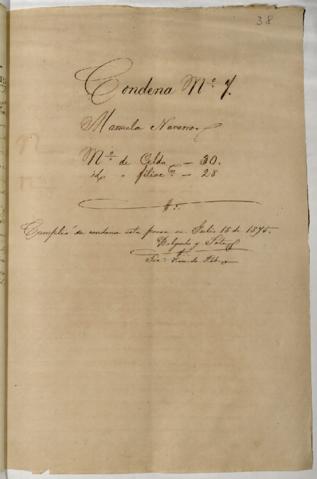 38
Condena Nº 7.
Manuela Navarro
Nº de Celda – 30.
id. " filiac.n – 28
Cumplió su condena esta presa en Julio 15 de 1875.
Delgado y